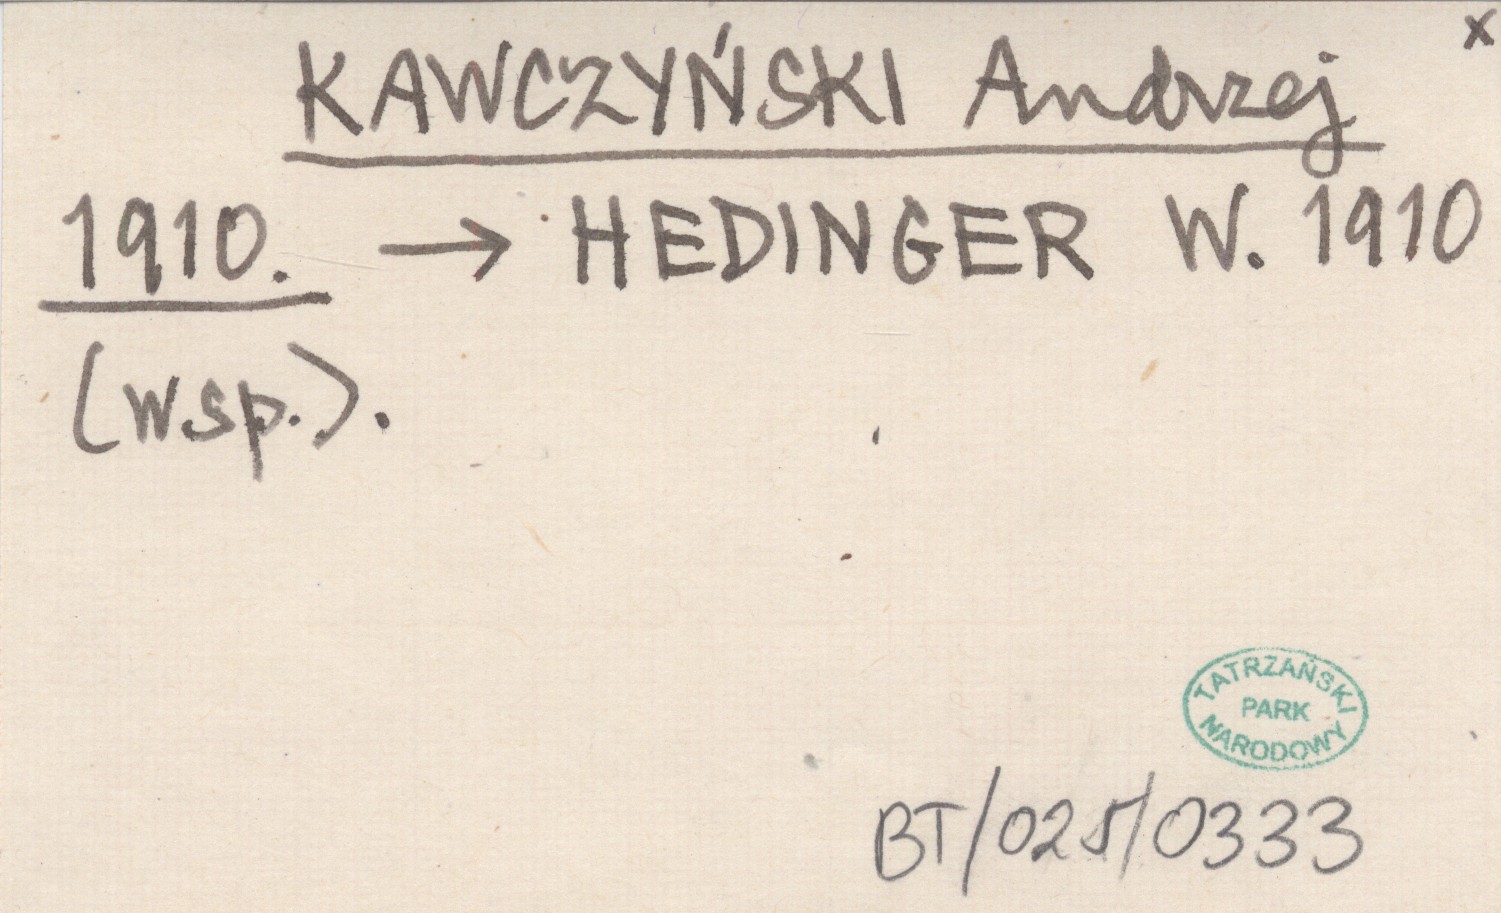 x
KAWCZYŃSKI Andrzej
1910. → HEDINGER W. 1910
(wsp.).
TATRZAŃSKI
PARK
NARODOWY
BT/025/0333